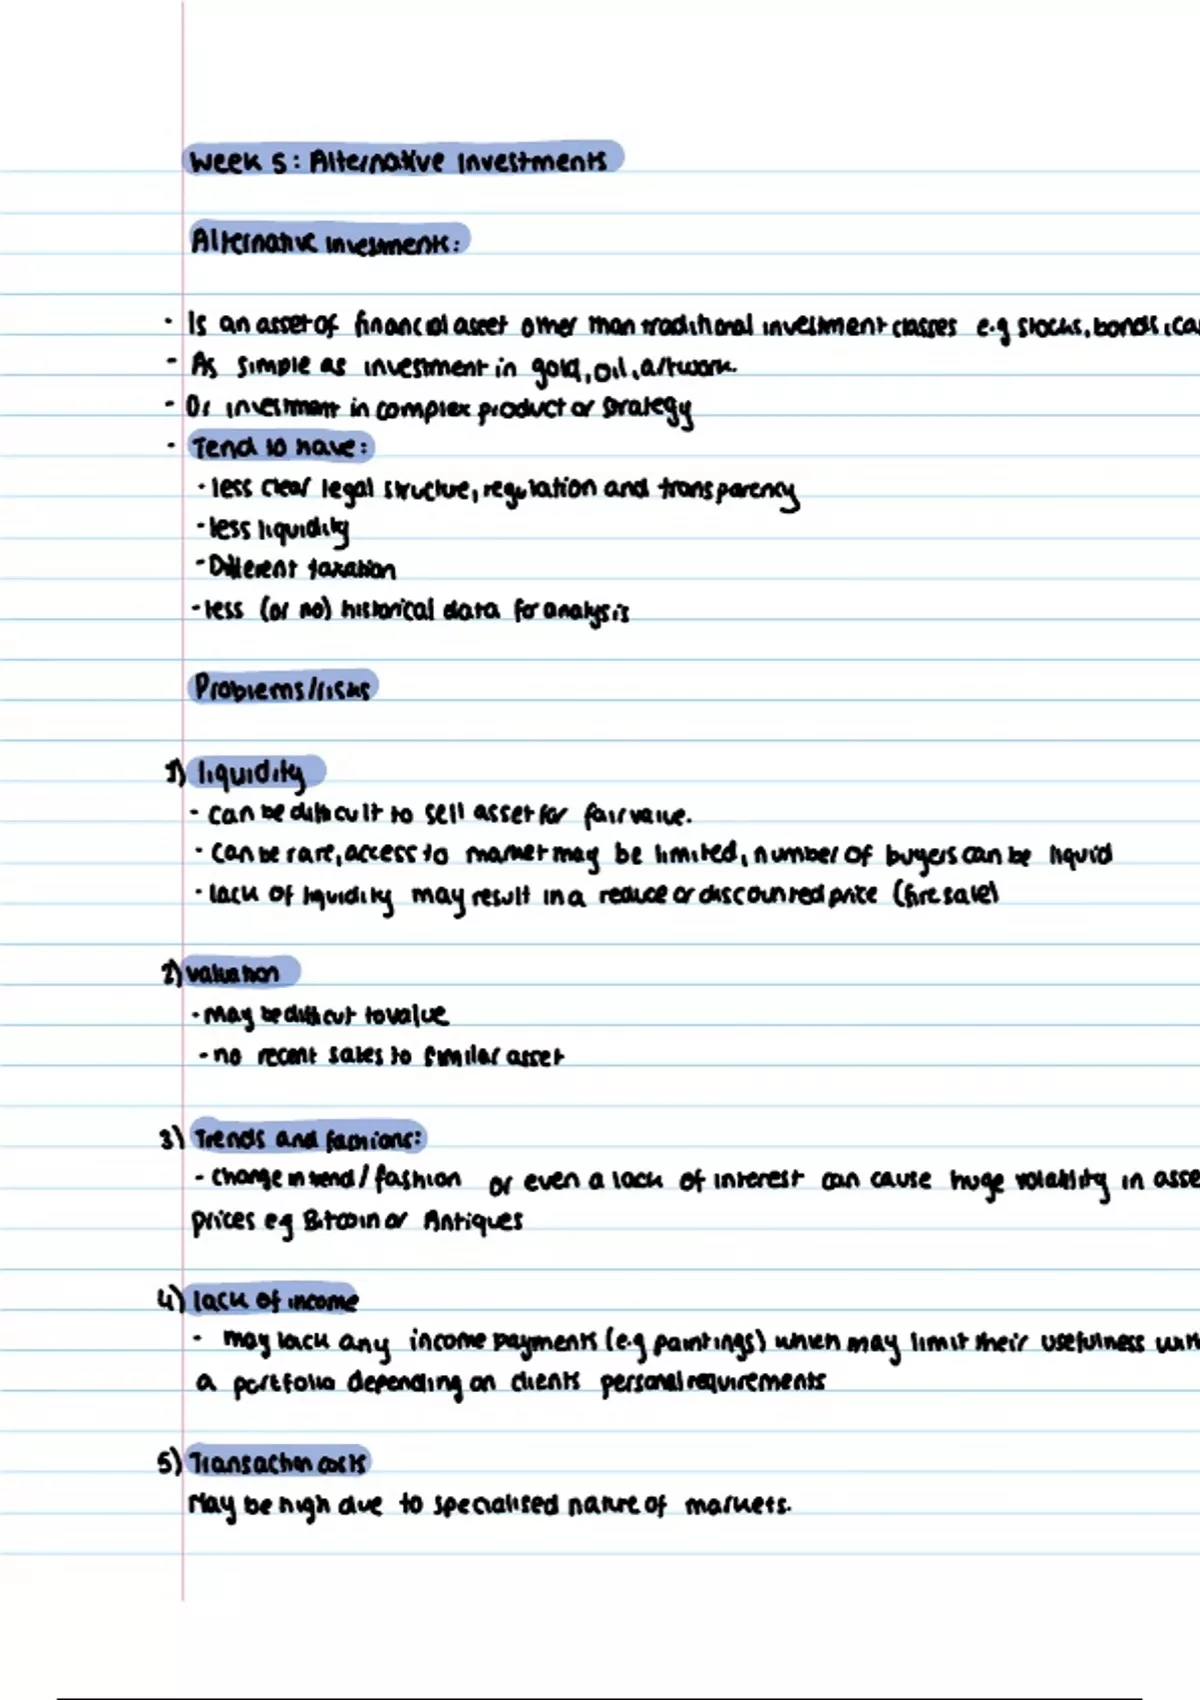 Week 5: Alternative Investments
Alternative investments:
- Is an asset of financial asset other than traditional investment classes e.g stocks, bonds, ca
- As simple as investment in gold, oil, artwork.
- Or investment in complex product or strategy
- Tend to have:
- less clear legal structure, regulation and transparency
- less liquidity
- Different taxation
- less (or no) historical data for analysis
Problems/risks
1) liquidity
- can be difficult to sell asset for fair value.
- can be rare, access to market may be limited, number of buyers can be liquid
- lack of liquidity may result in a reduce or discounted price (fire sale)
2) valuation
- may be difficult to value
- no recent sales to similar asset
3) Trends and fashions:
- change in trend / fashion or even a lack of interest can cause huge volatility in asse
prices eg Bitcoin or Antiques
4) lack of income
- may lack any income payments (e.g paintings) which may limit their usefulness with
a portfolio depending on clients personal requirements
5) Transaction costs
May be high due to specialised nature of markets.